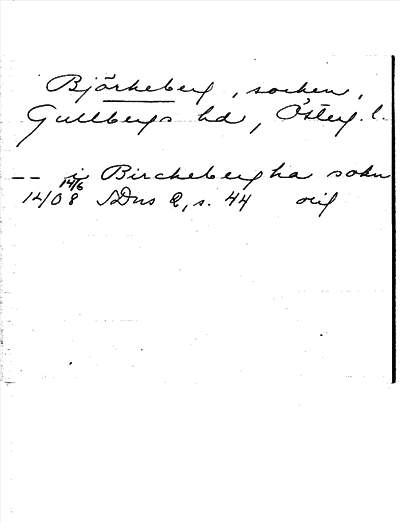 Björkeberg, socken,
Gullbergs hd, Österg. l.
-- i Birchebergha sokn
14/6
1408 SDns 2, s. 44 orig